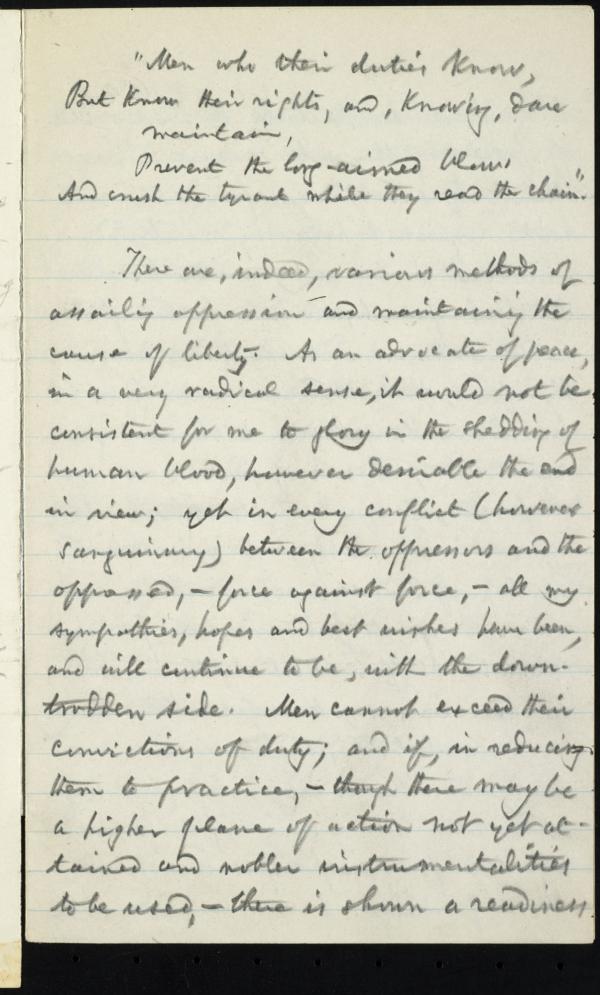 "Men who their duties know,
But know their rights, and, knowing, dare
maintain,
Prevent the long-aimed blow,
And crush the tyrant while they rend the chain."
There are, indeed, various methods of
assailing oppression and maintaining the
cause of liberty. As an advocate of peace,
in a very radical sense, it would not be
consistent for me to glory in the shedding of
human blood, however desirable the end
in view; yet in every conflict (however
sanguinary) between the oppressors and the
oppressed, – force against force, – all my
sympathies, hopes and best wishes have been,
and will continue to be, with the down-
trodden side. Men cannot exceed their
convictions of duty; and if, in reducing
them to practice, – though there may be
a higher plane of action not yet at-
tained and nobler instrumentalities
to be used, – there is shown a readiness